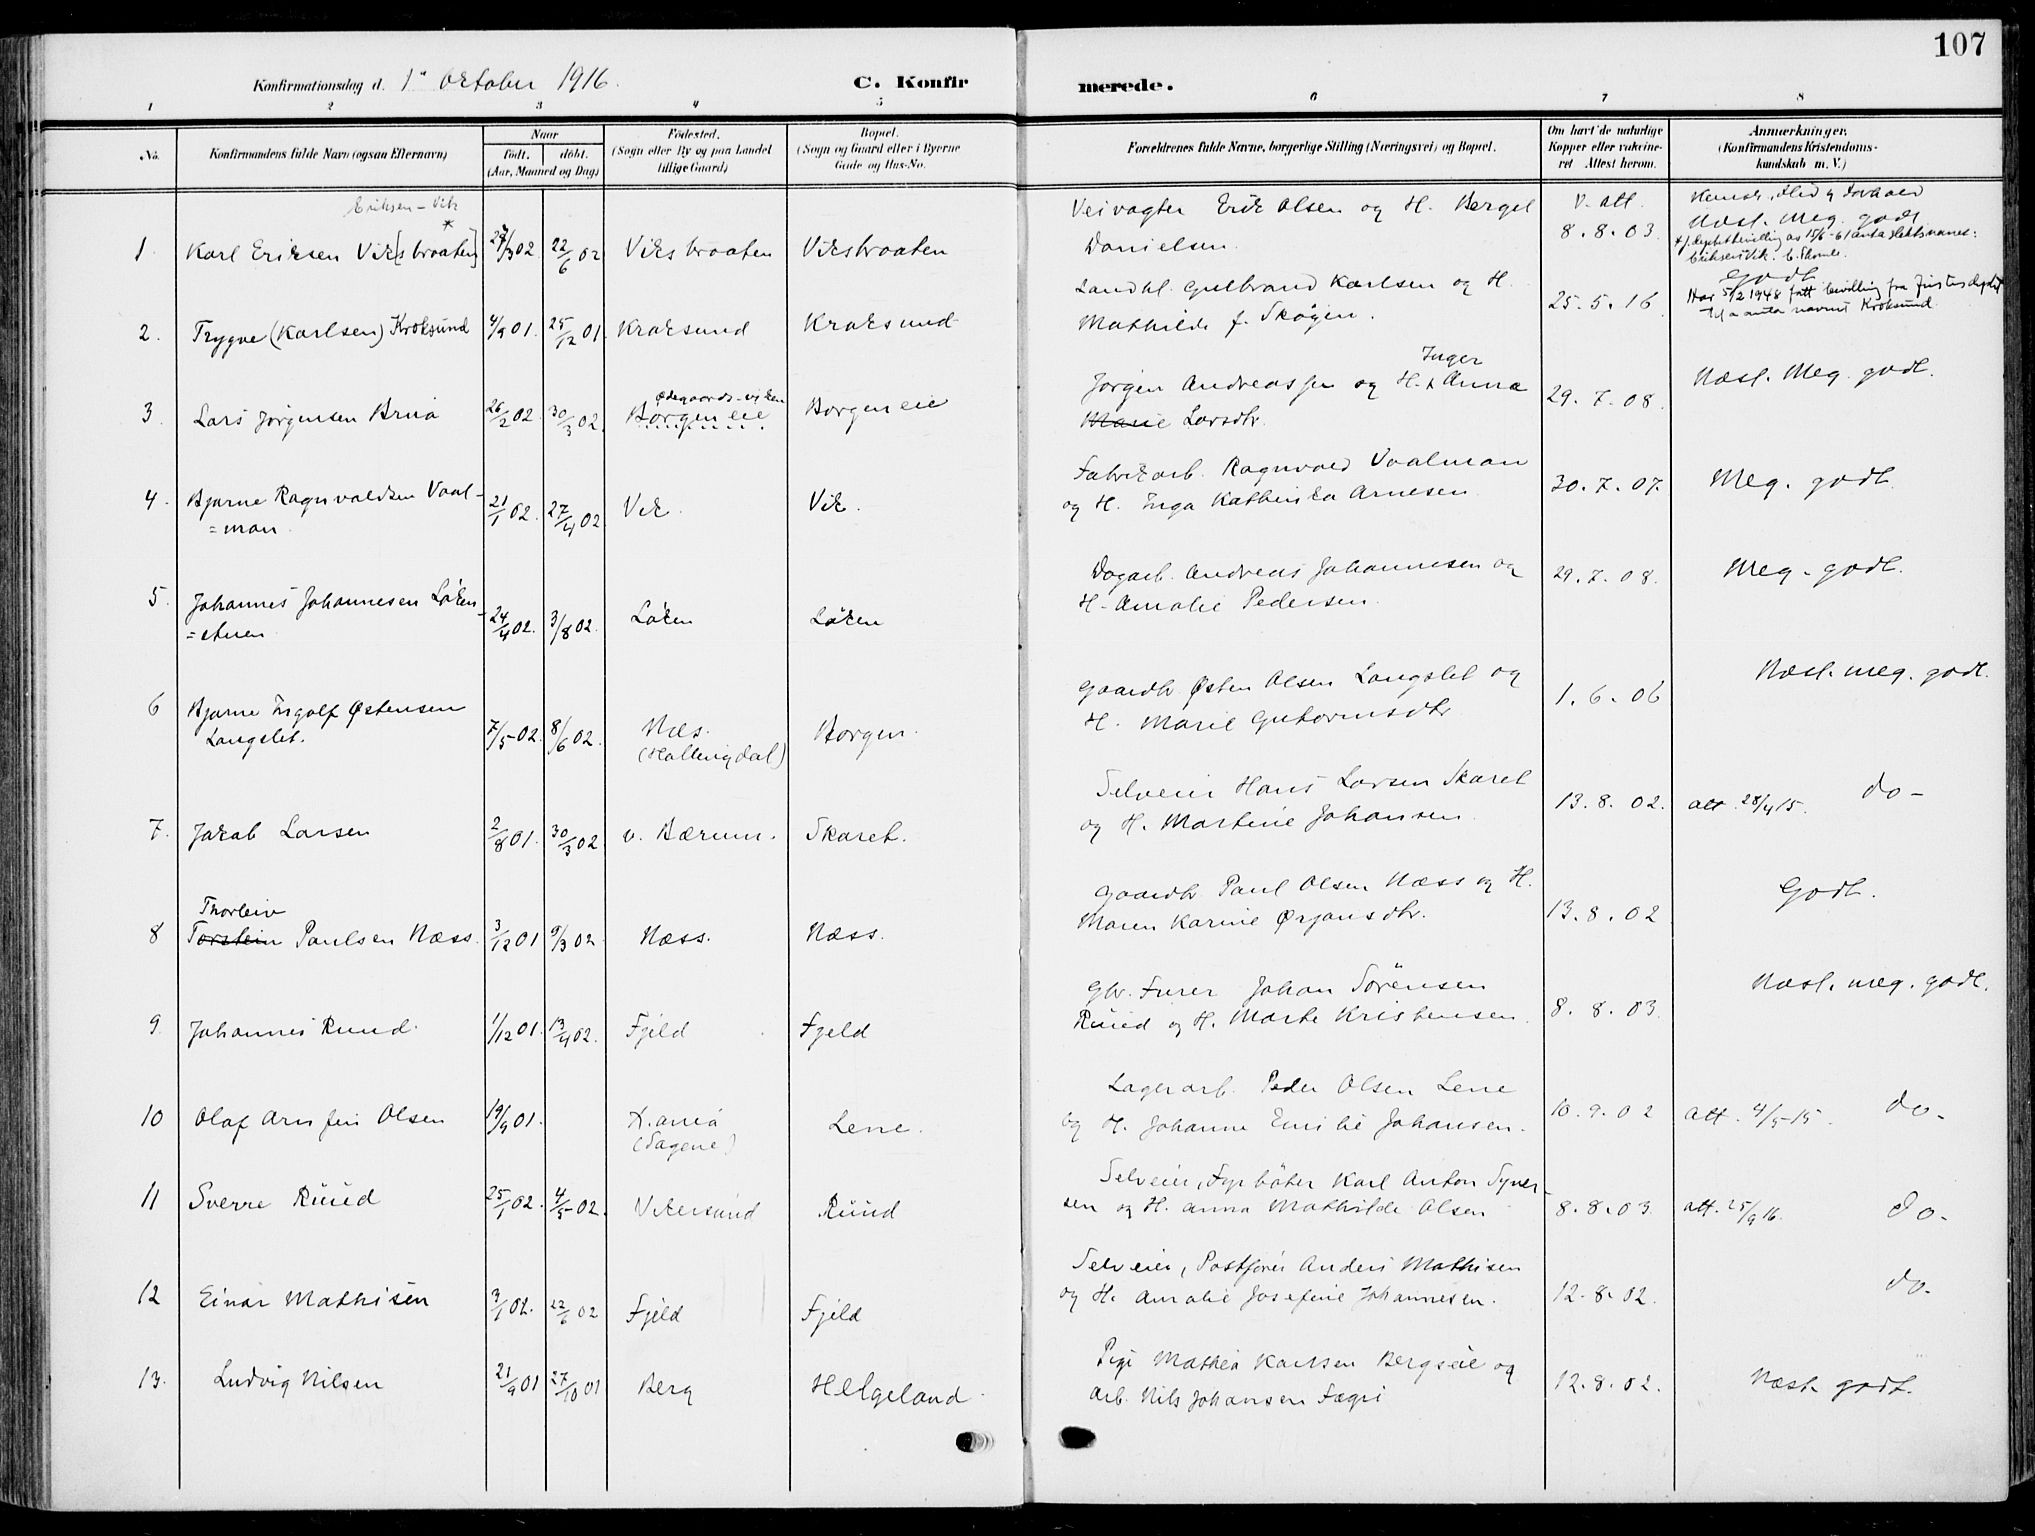 107
Konfirmationsdag d. 1ste October 1916.
C. Konfirmerede.
1 2 3 4 5 6 7 8
No. Konfirmandens fulde Navn (ogsaa Efternavn)
Naar
født. døbt.
(Aar, Maaned og Dag)
Fødested.
(Sogn eller By og paa Landet
tillige Gaard)
Bopæl.
(Sogn og Gaard eller i Byerne
Gade og Hus-No.
Forældrenes fulde Navne, borgerlige Stilling (Næringsvei) og Bopæl.
Om havt de naturlige
Kopper eller vakcine-
ret Attest herom.
Anmærkninger.
(Konfirmandens Kristendoms-
kundskab m. V.)
Eriksen - Vik
*
1. Karl Eriksen Vik[sbraaten] 3 02. 22/6 02 Viksbraaten Viksbraaten
Veivagter Erik Olsen og H. Berget
Danielsen.
v. att.
8. 8. 03.
Næst. Meg. godt
15/6-61 anta slektsnavnet:
Eriksen Vik.
2. Trygve (Karlsen) Kroksund 4/9 01. 25/12 01 Kroksund Kroksund
Landhl. Gulbrand Karlsen og H.
Mathilde f. Skogen.
25. 5. 16
Godt
Har 5/2 1948 fått bevilling fra Justisdeptet
til å anta navnet Kroksund
3. Lars Jørgensen Brua 26/2 02. 30/3 02 Borgen eie Borgen eie
Ødegaards-viken
Jørgen Andreassen og H. Anna
Inger
Marie Larsdtr.
29. 7. 08.
Næst. Meg. godt.
4. Bjarne Ragnvaldsen Vaal-
=man. 21/1 02. 27/4 02 Vik. Vik.
Fabrikarb. Ragnvald Vaalman
og H. Inga Kathinka Arnesen
30. 7. 07.
Meg. godt.
5. Johannes Johannesen Løken-
=stuen 24/4 02. 3/8 02. Løken Løken
Dagarb. Andreas Johannesen og
H. Amalie Pedersen.
29. 7. 08.
Meg. godt.
6 Bjarne Ingolf Østensen
Langslet. 7/5 02. 8/6 02. Næs.
(Hallingdal) Borgen.
Gaardbr. Østen Olsen Langslet og
H. Marie Guttormsdtr
1. 6. 06
Næst. meg. godt.
7. Jakob Larsen 2/8 01. 30/3 02 v. Bærum. Skaret.
Selveier Hans Larsen Skaret
og H. Martine Johansen.
13. 8. 02. att. 28/4 15. do -
Thorleiv
8 Torstein Paulsen Næss. 3/12 01 9/3 02. Næss. Næss.
Gaardbr Paul Olsen Næss og H.
Maren Karine Ørjansdtr.
13. 8. 02
Godt.
9. Johannes Ruud. 1/12 01. 13/4 02. Fjeld Fjeld
Gbr. Furer Johan Sørensen
Ruud og H. Marte Kristensen.
8. 8. 03.
Næst. meg. godt.
10 Olaf Arnfin Olsen 19/9 01. X.ania
(Sagene) Lene.
Lagerarb. Peder Olsen Lene
og H. Johanne Emilie Johansen.
10. 9. 02 att. 4/5-15. do -
11 Sverre Ruud 25/1 02. 4/5 02. Vikersund Ruud
Selveier, Fyrbøter Karl Anton Syver-
sen og H. Anna Mathilde Olsen
8. 8. 03. att. 25/9 16. do -
12 Einar Mathisen 3/1 02. 22/6 02 Fjeld Fjeld
Selveier, Postfører Anders Mathisen
og H. Amalie Josefine Johannesen.
12. 8. 02. do -
13. Ludvig Nilsen 21/9 01 27/10 01 Berg Helgeland.
Pige Mathea Karlsen Bergseie og
Arb. Nils Johansen Fægri
12. 8. 02.
Næst. godt.